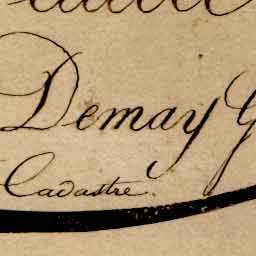 Demay G
Cadastre.